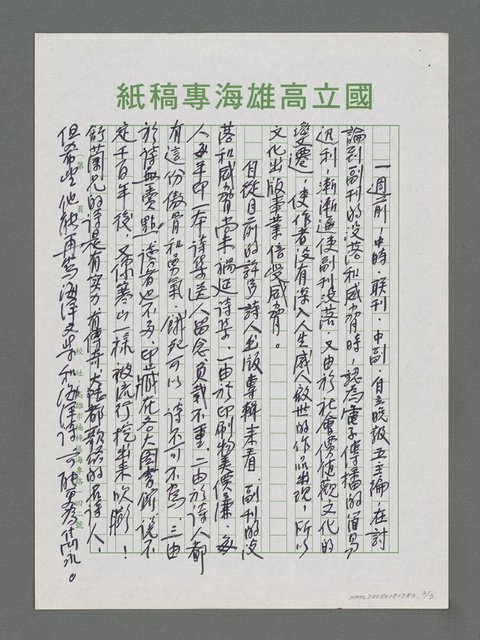 國立高雄海專稿紙
一週前，中時．聯刊．中副．自立晚報五主編．在討
論到副刊的沒落和威脅時，認為電子傳播的簡易
迅利，漸漸逼使副刊沒落．又由於社會價值觀文化的
變遷，使作者沒有深入人生感人啟世的作品出現，所以
文化出版事業倍受威脅。
但從目前的許多詩人出版專輯來看．副刊的沒
落和威脅尚未禍延詩集．一由於印刷物美價廉．每
人每年印一本詩集送人留念負載不重．二由於詩人都
有這份傲骨和勇氣，餓死可以，詩不可不寫．三由
於詩無賣點，讀者也不多，印藏在各大圖書館，說不
定千百年後，又像寒山一樣被流行挖出來吹膨！
舒蘭兄的詩是有實力，有傳奇，大陸都歌頌的名詩人，
但希望他能再為海洋文學和海洋詩
NMTL20080181783, 3/3